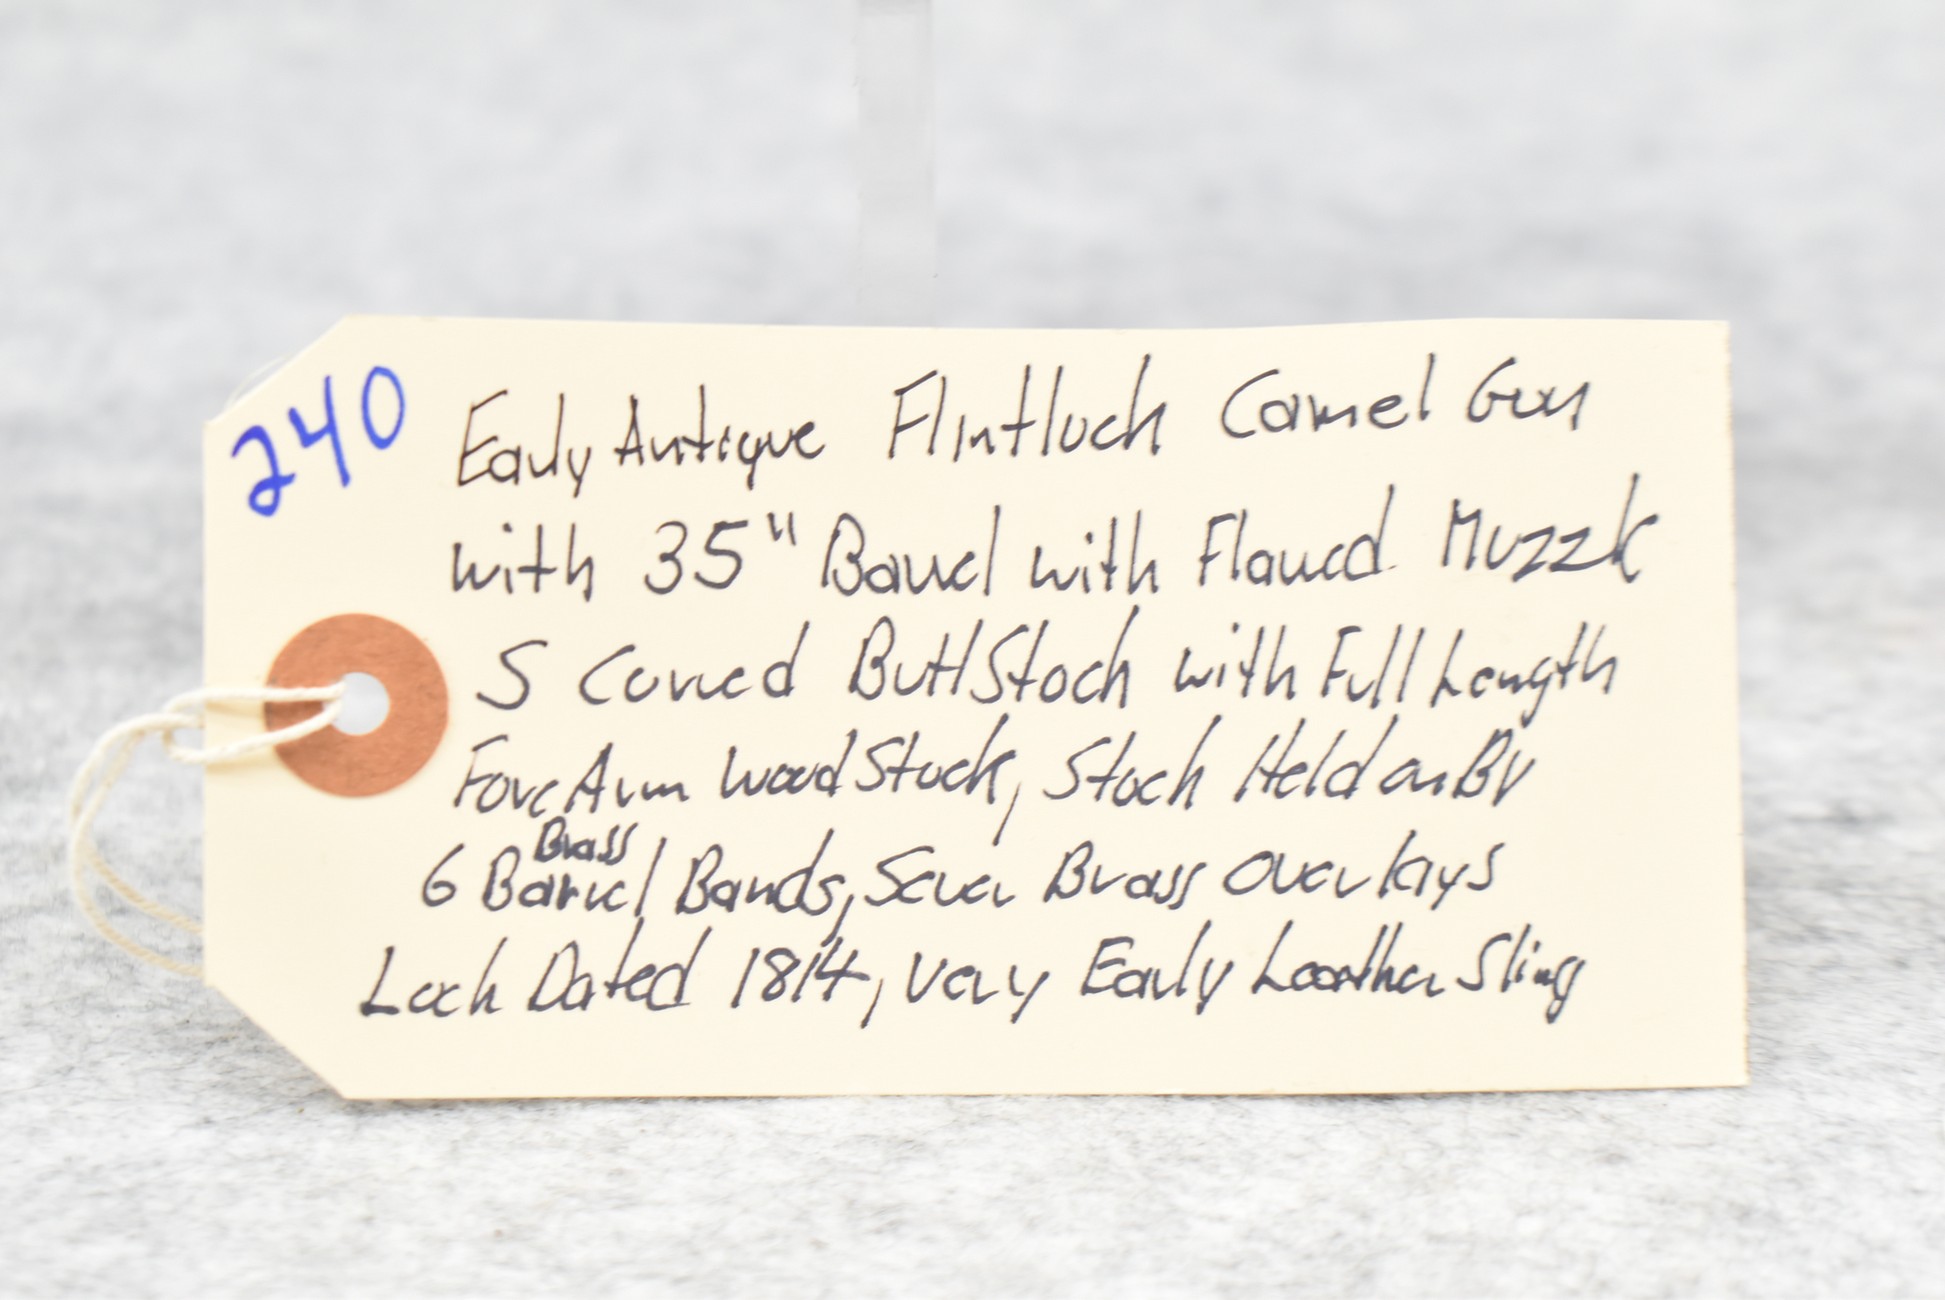 240
Early Antique Flintlock Camel Gun
with 35" Barrel with Flared Muzzle
S Curved Butt Stock with Full Length
Fore Arm Wood Stock, Stock Held on By
Brass
6 Barrel Bands, Sever Brass Overlays
Lock Dated 1814, Very Early Leather Sling